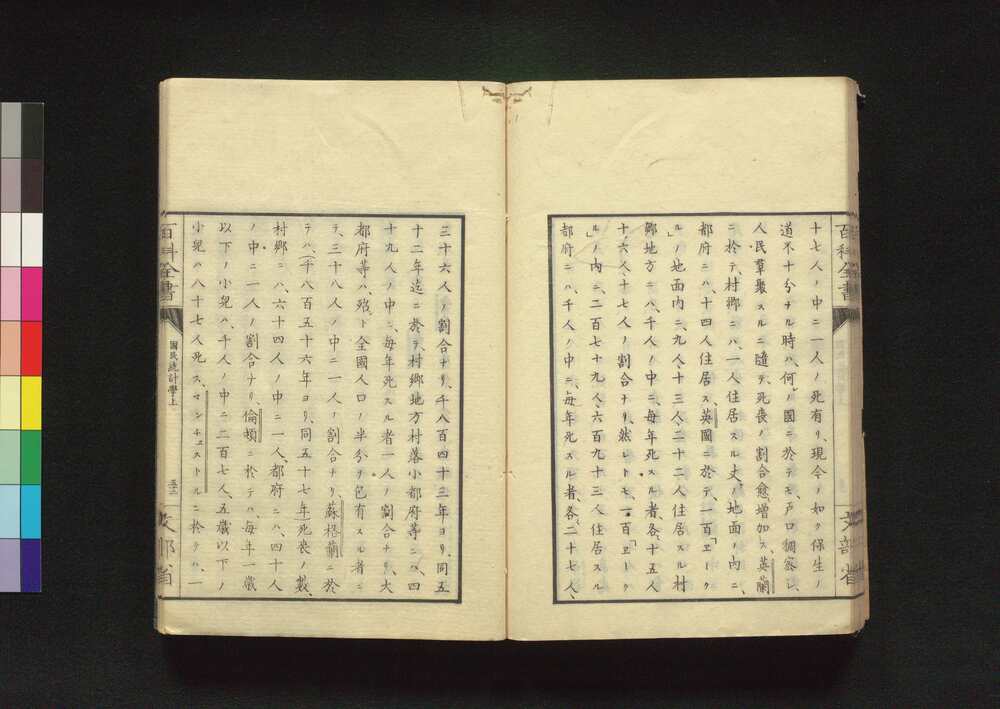 十七人ノ中ニ一人ノ死有リ、現今ノ如ク保生ノ
道不十分ナル時ハ、何ノ國ニ於テモ、戸口稠密シ、
人民羣聚スルニ隨テ、死喪ノ割合愈増加ス、英蘭
ニ於テ、村郷ニハ、一人住居スル丈ノ地面ノ内ニ、
都府ニハ、十四人住居ス、英國ニ於テ、一百「ヱーク
ル」ノ地面内ニ、九人、十三人、二十二人住居スル村
郷地方ニハ、千人ノ中ニ、毎年死スル者、各、十五人
十六人、十七人ノ割合ナリ、然レトモ、一百「ヱーク
ル」ノ内ニ、二百七十九人、六百九十三人住居スル
都府ニハ、千人ノ中ニ、毎年死スル者、各、二十七人、
百科全書
文部省
三十六人ノ割合ナリ、千八百四十三年ヨリ、同五
十二年迄ニ於テ、村郷地方村落小都府等ニハ、四
十九人ノ中ニ、毎年死スル者一人ノ割合ナリ、大
都府等ハ、殆ト全國人口ノ半分ヲ包有スル者ニ
テ、三十八人ノ中ニ一人ノ割合ナリ、蘇格蘭ニ於
テハ、千八百五十六年ヨリ、同五十七年死喪ノ數、
村郷ニハ、六十四人ノ中ニ一人、都府ニハ、四十人
ノ中ニ一人ノ割合ナリ、倫頓ニ於テハ、毎年一歳
以下ノ小兒ハ、千人ノ中ニ二百七人、五歳以下ノ
小兒ハ八十七人死ス、マンチェストルニ於テハ、一
百科全書
國民統計學上
五十二
文部省